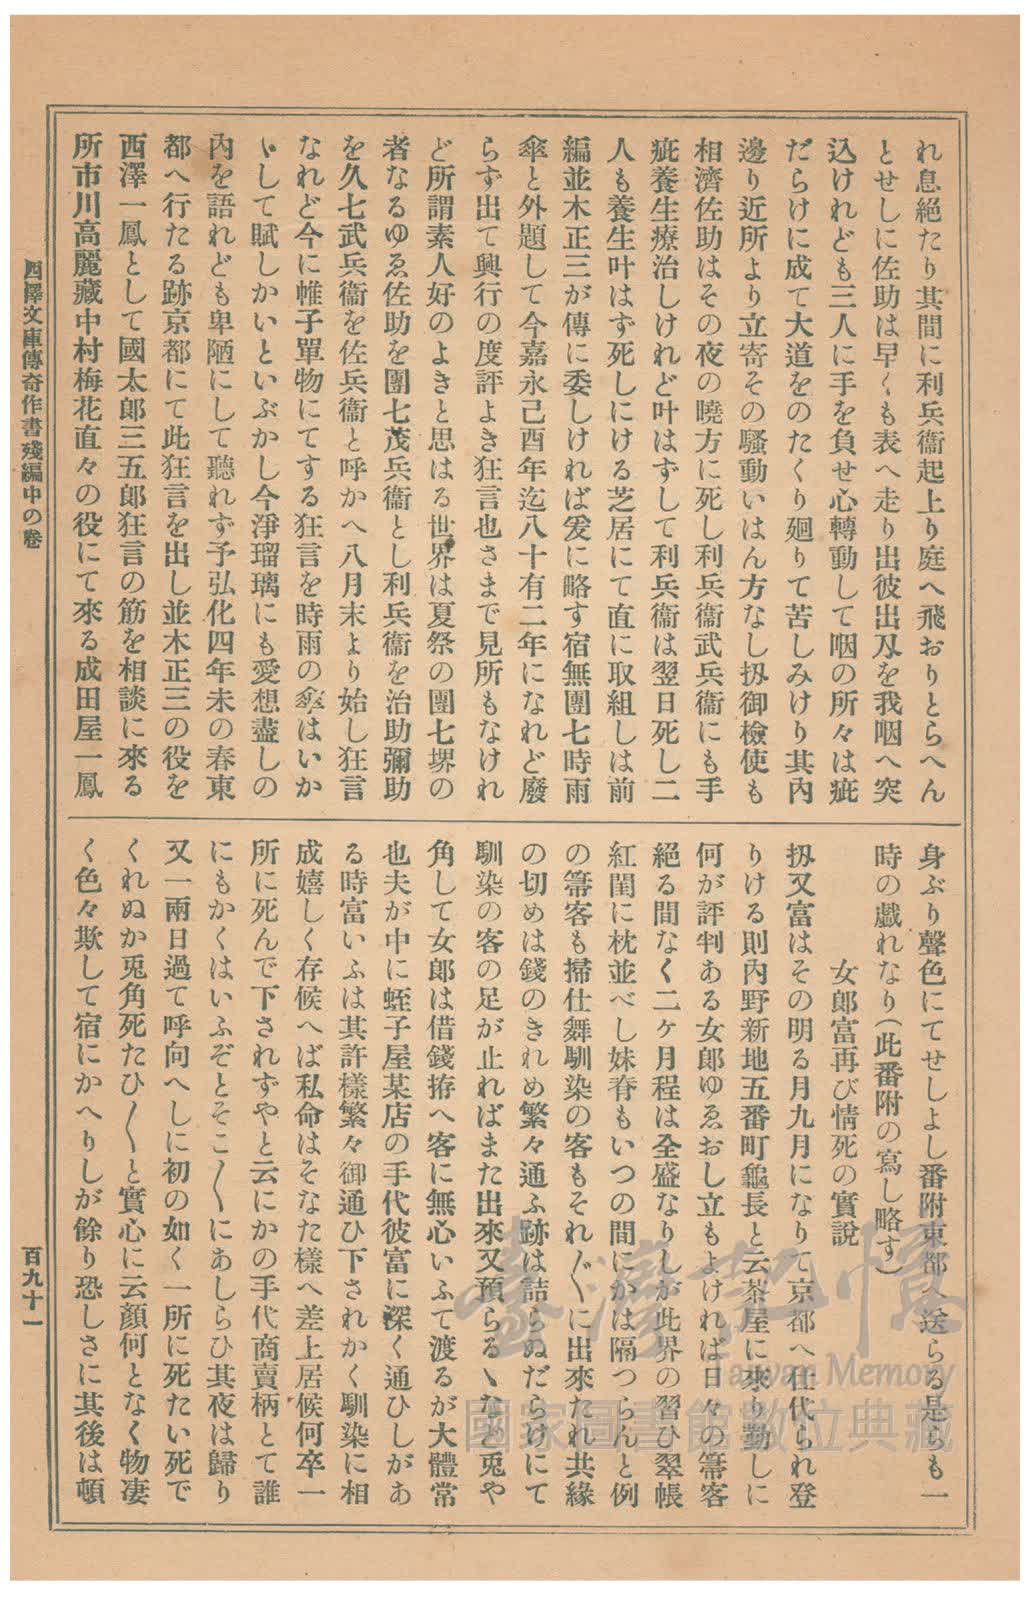 れ息絶たり其間に利兵衞起上り庭へ飛おりとらへん
とせしに佐助は早くも表へ走り出彼出刄を我咽へ突
込けれども三人に手を負せ心轉動して咽の所々は疵
だらけに成て大道をのたくり廻りて苦しみけり其内
邊り近所より立寄その騷動いはん方なし扨御檢使も
相濟佐助はその夜の曉方に死し利兵衞武兵衞にも手
疵養生療治しけれど叶はずして利兵衞は翌日死し二
人も養生叶はず死しにける芝居にて直に取組しは前
編並木正三が傳に委しければ爰に略す宿無團七時雨
傘と外題して今嘉永己酉年迄八十有二年になれど廢
らず出て興行の度評よき狂言也さまで見所もなけれ
ど所謂素人好のよきと思はる世界は夏祭の團七堺の
者なるゆゑ佐助を團七茂兵衞とし利兵衞を治助彌助
を久七武兵衞を佐兵衞と呼かへ八月末より始し狂言
なれど今に帷子單物にてする狂言を時雨の傘はいか
ゝして賦しかいといぶかし今淨瑠璃にも愛想盡しの
內を語れども卑陋にして聽れず予弘化四年未の春東
都へ行たる跡京都にて此狂言を出し並木正三の役を
西澤一鳳として國太郎三五郎狂言の筋を相談に來る
所市川高麗藏中村梅花直々の役にて來る成田屋一鳳
身ぶり聲色にてせしよし番附東都へ送らる是らも一
時の戲れなり(此番附の寫し略す)
女郎富再び情死の實說
扨又富はその明る月九月になりて京都へ仕代られ登
りける則內野新地五番町龜長と云茶屋に來り勤しに
何が評判ある女郎ゆゑおし立もよければ日々の箒客
絕る間なく二ヶ月程は全盛なりしが此界の習ひ翠帳
紅閨に枕並べし妹脊もいつの間にかは隔つらんと例
の箒客も掃仕舞馴染の客もそれ〲に出來たれ共緣
の切めは錢のきれめ繁々通ふ跡は詰らぬだらけにて
馴染の客の足が止ればまた出來又預らるゝなど兎や
角して女郎は借錢拵へ客に無心いふて渡るが大體常
也夫が中に蛭子屋某店の手代彼富に深く通ひしがあ
る時富いふは其許樣繁々御通ひ下されかく馴染に相
成嬉しく存候へば私命はそなた樣へ差上居候何卒一
所に死んで下されずやと云にかの手代商賣柄とて誰
にもかくはいふぞとそこ〱にあしらひ其夜は歸り
又一兩日過て呼向へしに初の如く一所に死たい死で
くれぬか兎角死たひ〱と實心に云顏何となく物凄
く色々欺して宿にかへりしが餘り恐しさに其後は頓
西澤文庫傳奇作書殘編中の卷
百九十一
臺灣記憶
Taiwan Memory
國家圖書館數位典藏